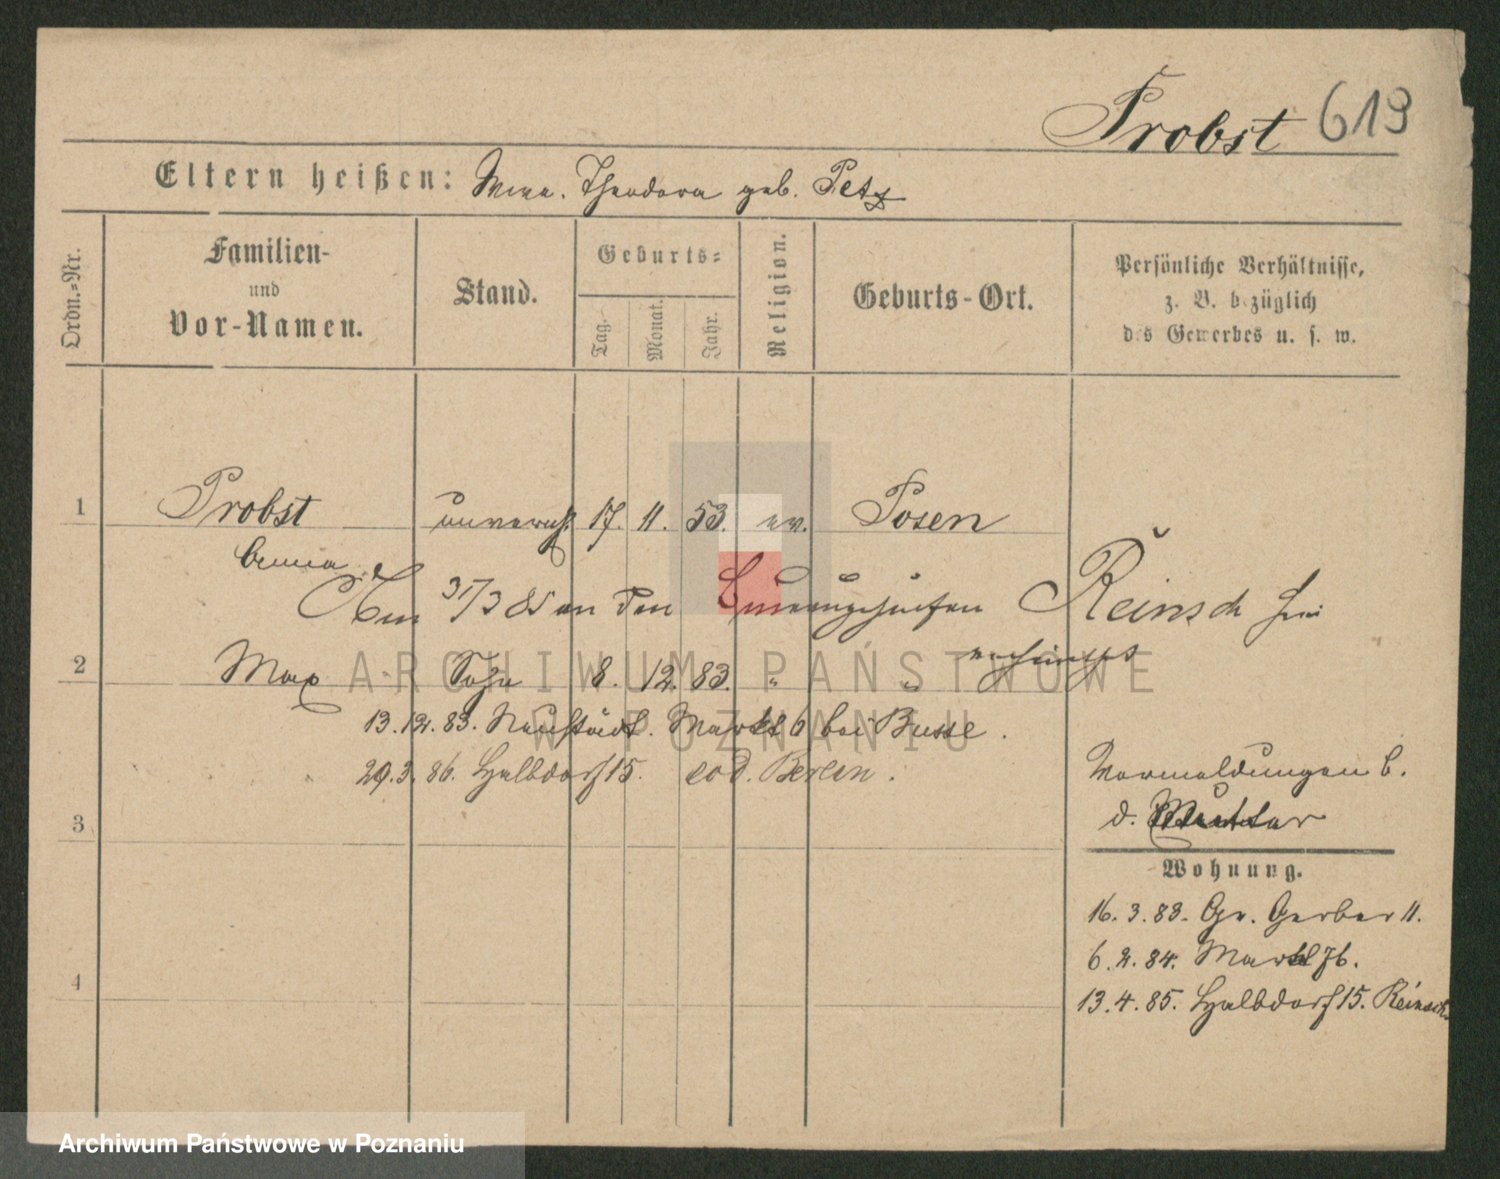 Probst 619
Eltern heißen: Wwe. Theodora geb. Petz
Ordn.-Nr.
Familien-
und
Vor-Namen.
Stand.
Geburts-
Tag.
Monat.
Jahr.
Religion.
Geburts-Ort.
Persönliche Verhältnisse,
z. B. bezüglich
des Gewerbes u. s. w.
1 Probst unvereh. 17. 11. 53. ev. Posen
Anna
Am 31/3 85 an den Reinsch hier
verheirathet
2 Max Sohn 8. 12. 83. " "
13.12.83. Neustädt. Markt 6 bei Busse.
29.3.86. Halbdorf 15. Berlin.
Vermeldungen b.
d. Mutter
3
Wohnung.
16.3.83. Gr. Gerber 11.
6.2.84. Markt 76.
4
13.4.85. Halbdorf 15. Reinsch
ARCHIWUM PAŃSTWOWE
W POZNANIU
Archiwum Państwowe w Poznaniu